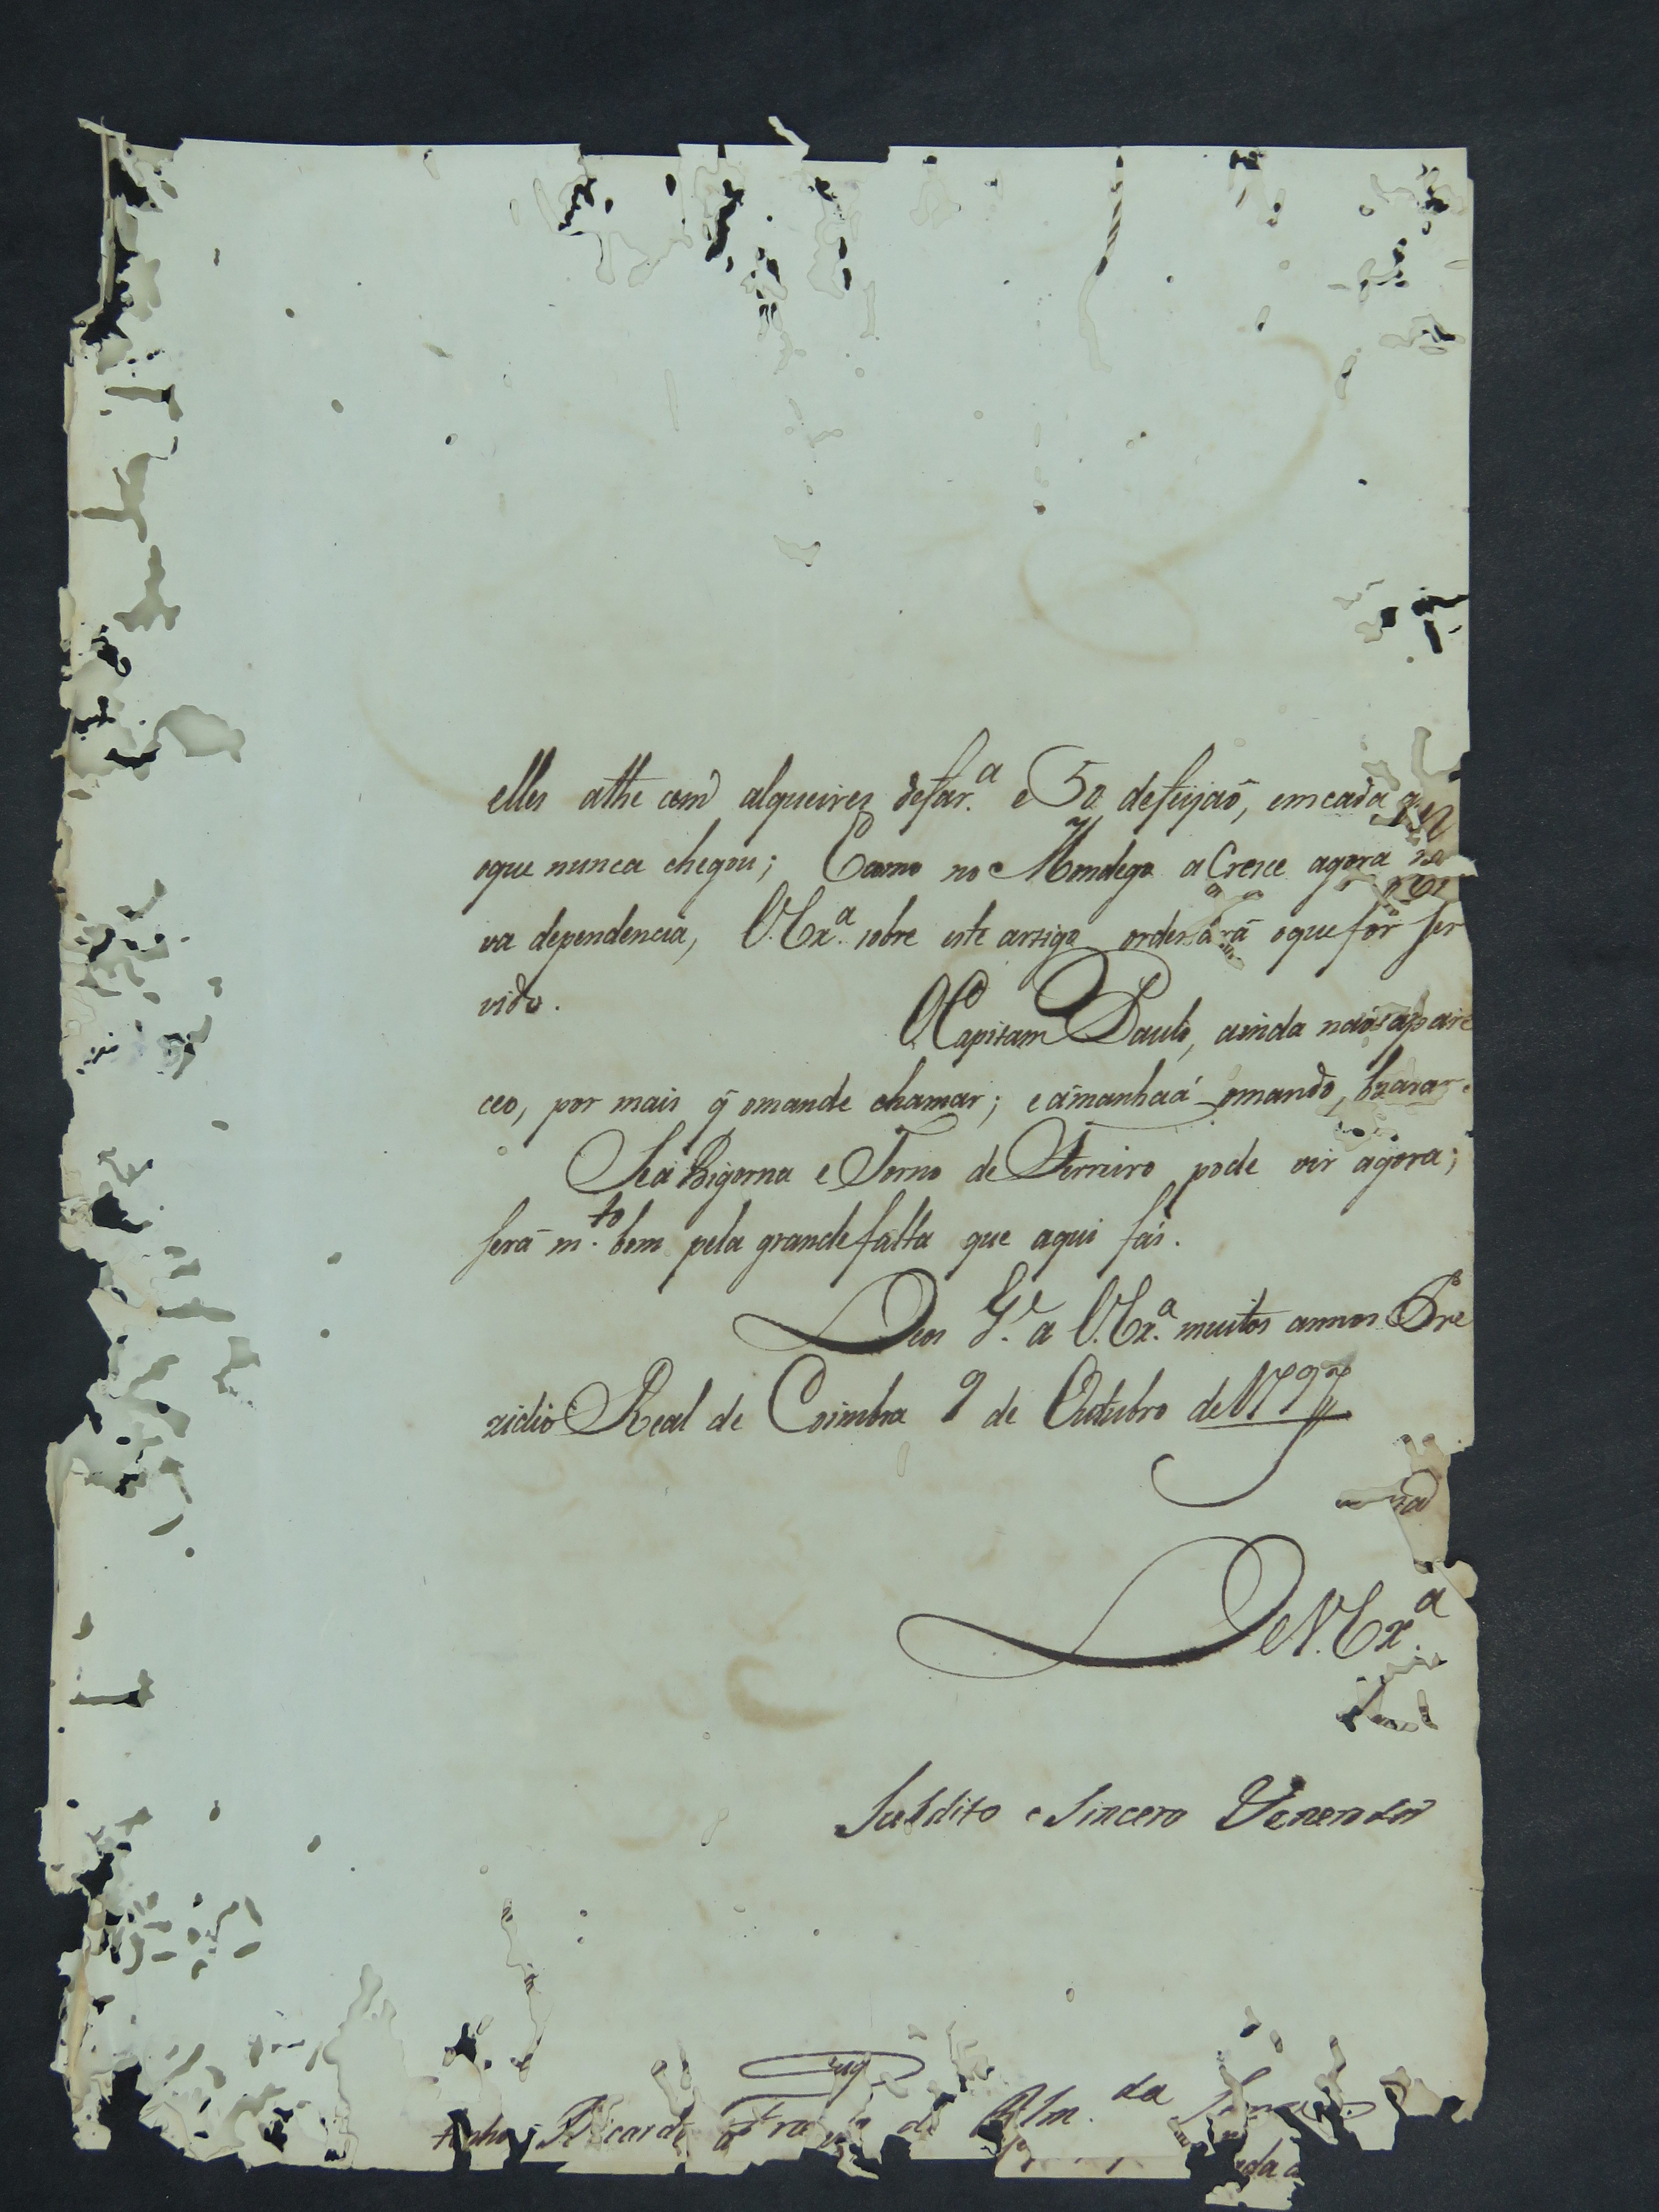 elles athe cem alqueires de far.ª e 50 de feijaõ, em cada
oque nunca chegou; Como no Mondego a Cresce agora no
va dependencia, V. Ex.ª sobre este artigo ordenará oque for ser
vido.
O Capitam Paulo, ainda naõ apare
ceo, por mais q̃ omande chamar; e ámanhaá omando, buscar.
Se a Bigorna e Torno de Ferreiro pode vir agora;
será m.to bom pela grande falta que aqui fás.
Deos G.e a V. Ex.ª muitos annos Pre
zidio Real de Coimbra 9 de Outubro de 1797
De V. Ex.ª
Subdito e Sincero Venerador
Ricardo Franco de Alm.da Serra